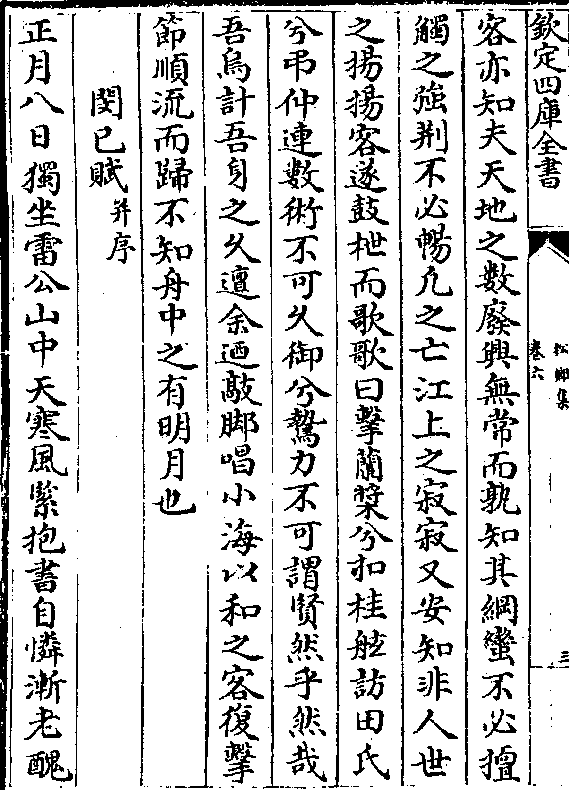 欽定四庫全書
卷六
三
容亦知夫天地之數廢興無常而孰知其綱蠻不必擅
觸之強荆不必暢凡之亡江上之寂寂又安知非人世
之揚揚客遂鼓枻而歌歌曰擊蘭槳兮扣桂舷訪田氏
兮弔仲連數術不可久御兮驁力不可謂賢然乎然哉
吾烏計吾身之久邅余迺敲脚唱小海以和之客復擊
節順流而歸不知舟中之有明月也
閔已賦并序
正月八日獨坐雷公山中天寒風緊抱書自憐漸老醜